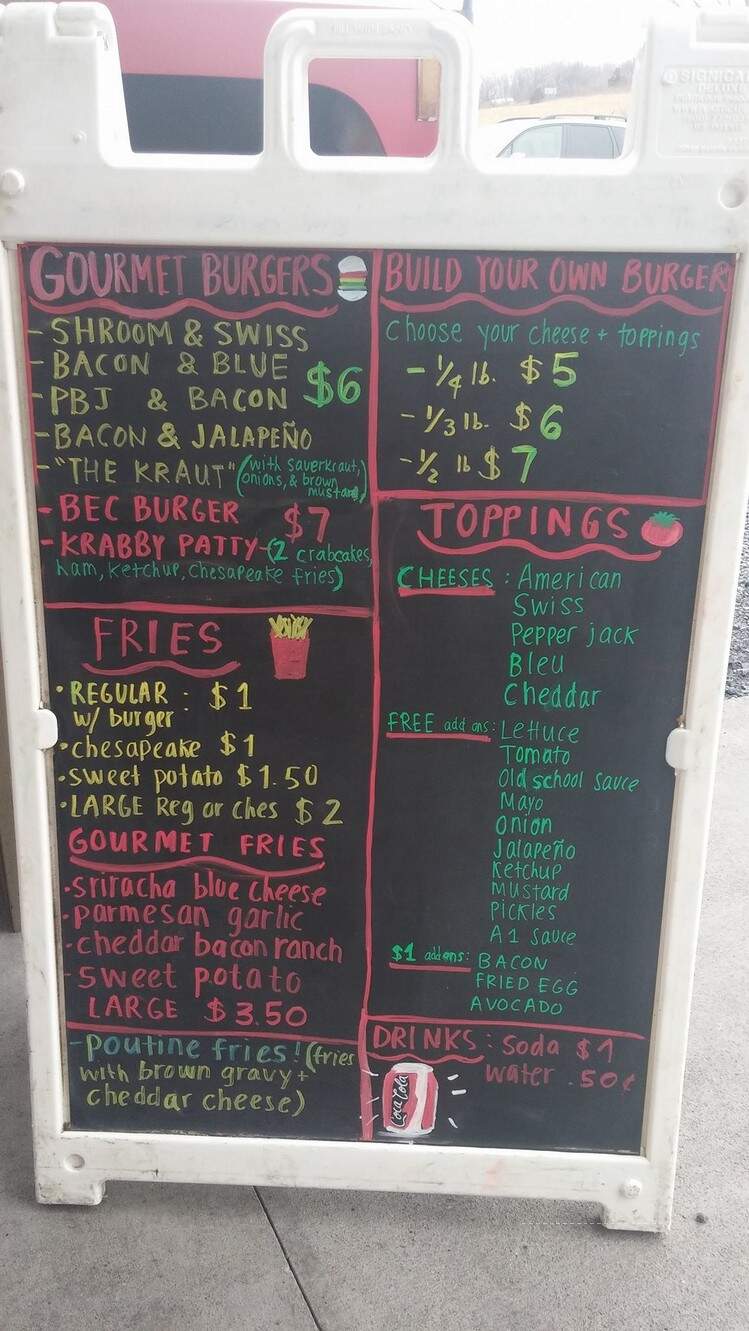 GOURMET BURGERS
- SHROOM & SWISS
- BACON & BLUE
- PBJ & BACON
$6
- BACON & JALAPEÑO
- "THE KRAUT" (with sauerkraut,
onions, & brown
mustard)
- BEC BURGER $7
- KRABBY PATTY-(2 crabcakes,
ham, ketchup, Chesapeake fries)
FRIES
• REGULAR : $1
w/ burger
• chesapeake $1
• sweet potato $1.50
• LARGE Reg or ches $2
GOURMET FRIES
• sriracha blue cheese
• parmesan garlic
• cheddar bacon ranch
- sweet potato
LARGE $3.50
- poutine fries! (fries
with brown gravy +
cheddar cheese)
BUILD YOUR OWN BURGER
choose your cheese + toppings
- 1/4 lb. $5
- 1/3 lb. $6
- 1/2 lb $7
TOPPINGS
CHEESES : American
Swiss
Pepper jack
Bleu
Cheddar
FREE add ons: Lettuce
Tomato
Old school sauce
Mayo
onion
Jalapeño
Ketchup
Mustard
Pickles
A1 sauce
$1 add ons: BACON
FRIED EGG
AVOCADO
DRINKS : Soda $1
water .50¢
Coca Cola
SIGNICA
DELUX